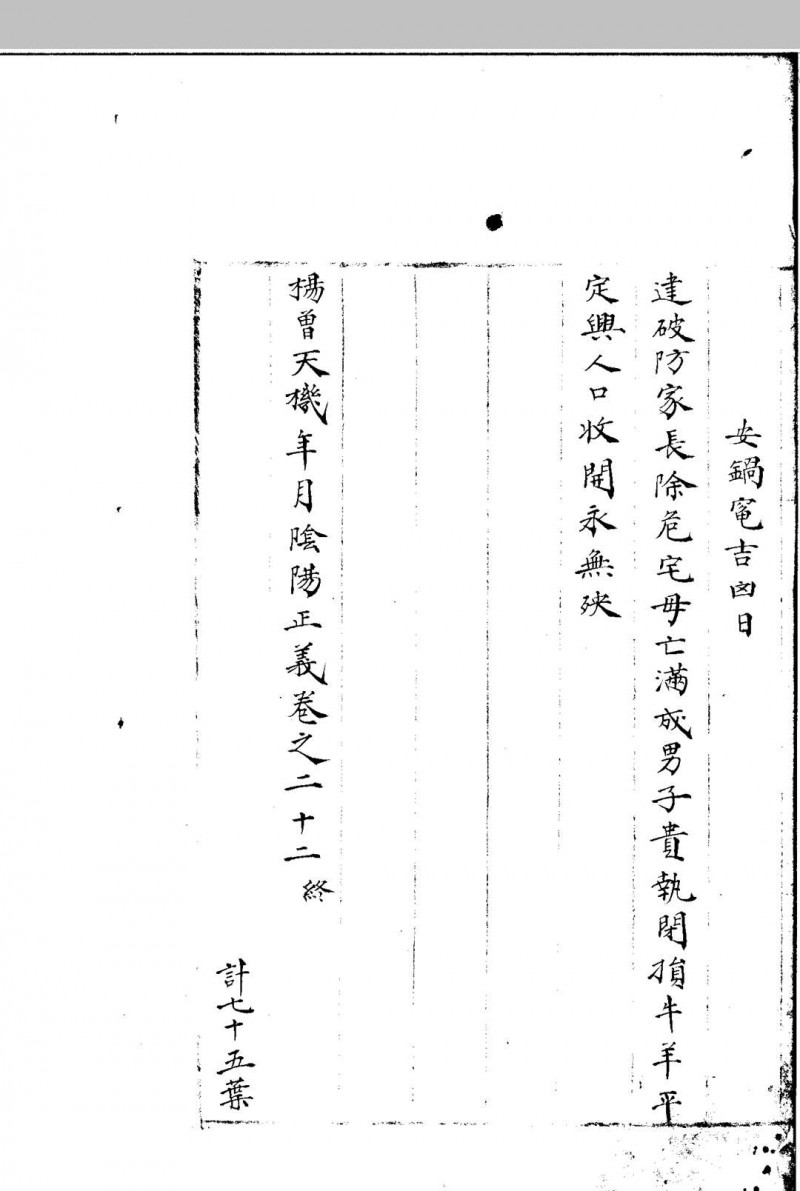 安鍋竃吉凶日
建破防家長除危宅母亡滿成男子貴執閉損牛羊平
定興人口收開永無殃
楊曽天機年月陰陽正義卷之二十二終
計七十五葉